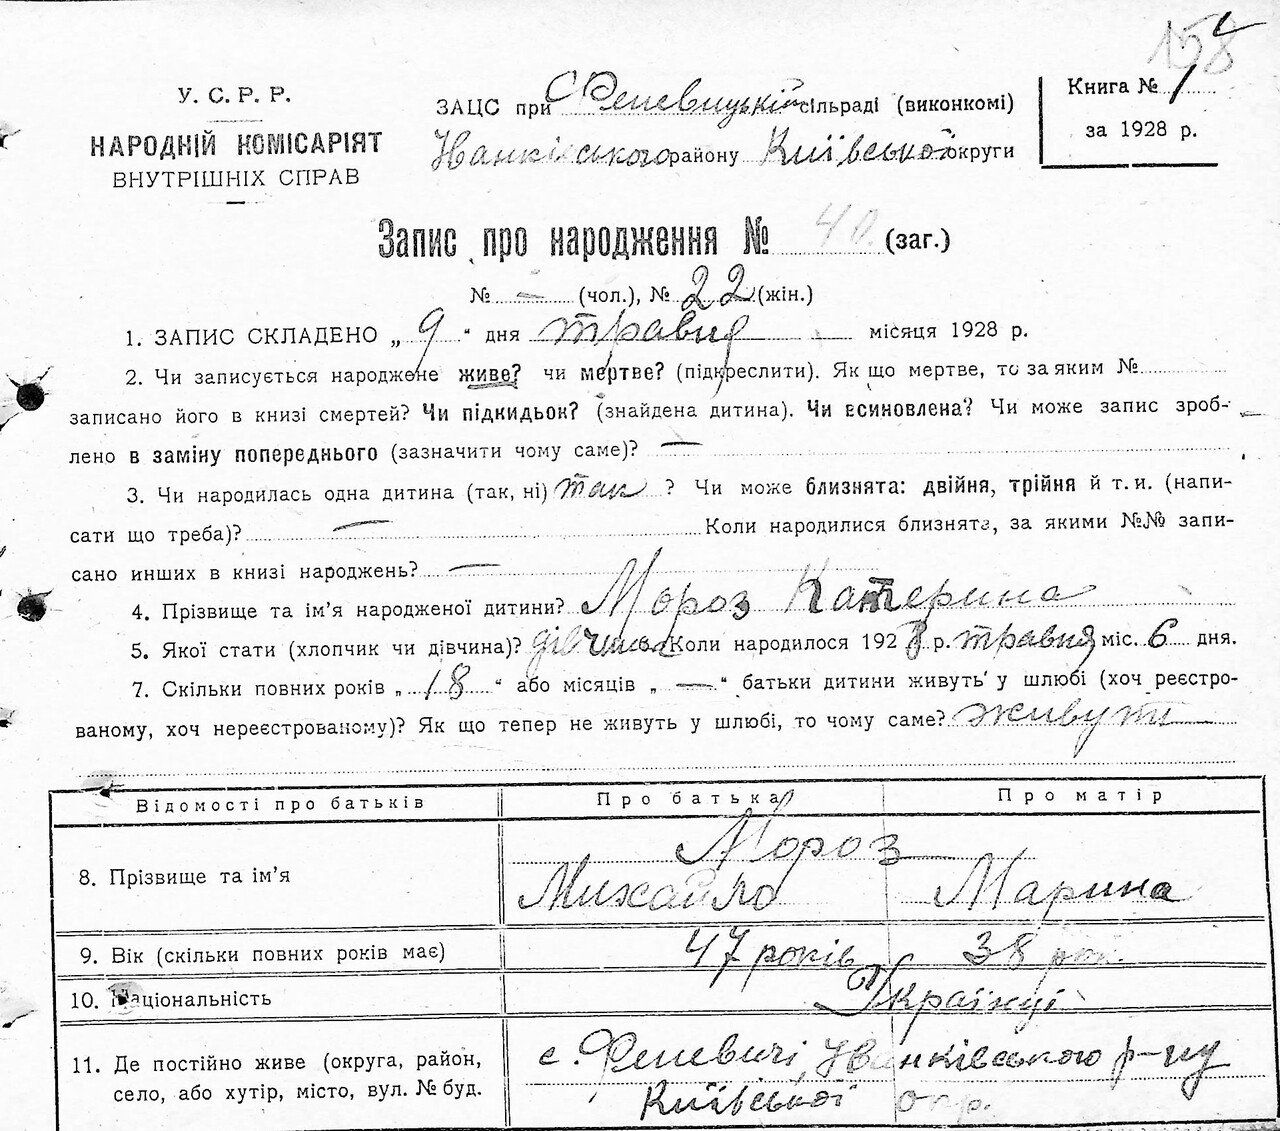 158
У. С. Р. Р.
НАРОДНІЙ КОМІСАРІЯТ
ВНУТРІШНІХ СПРАВ
ЗАЦС при Феневицькій сільраді (виконкомі)
Іванківського району Київської округи
Книга № 1
за 1928 р.
Запис про народження № 40. (заг.)
№ — (чол.), № 22 (жін.)
1. ЗАПИС СКЛАДЕНО „ 9 “ дня травня місяця 1928 р.
2. Чи записується народжене живе? чи мертве? (підкреслити). Як що мертве, то за яким №
записано його в книзі смертей? Чи підкидьок? (знайдена дитина). Чи всиновлена? Чи може запис зроб-
лено в заміну попереднього (зазначити чому саме)? —
3. Чи народилась одна дитина (так, ні) так ? Чи може близнята: двійня, трійня й т. и. (напи-
сати що треба)? — Коли народилися близнята, за якими №№ запи-
сано инших в книзі народжень? —
4. Прізвище та ім’я народженої дитини? Мороз Катерина
5. Якої стати (хлопчик чи дівчина)? дівчина Коли народилося 1928 р. травня міс. 6 дня.
7. Скільки повних років „ 18 “ або місяців „ — “ батьки дитини живуть у шлюбі (хоч реєстро-
ваному, хоч нереєстрованому)? Як що тепер не живуть у шлюбі, то чому саме? живуть
Відомості про батьків Про батька Про матір
Мороз
8. Прізвище та ім’я Михайло Марина
9. Вік (скільки повних років має) 47 років 38 рок.
10. Національність Українці
11. Де постійно живе (округа, район, с. Феневичі, Іванківського р-ну
село, або хутір, місто, вул. № буд. Київської окр.